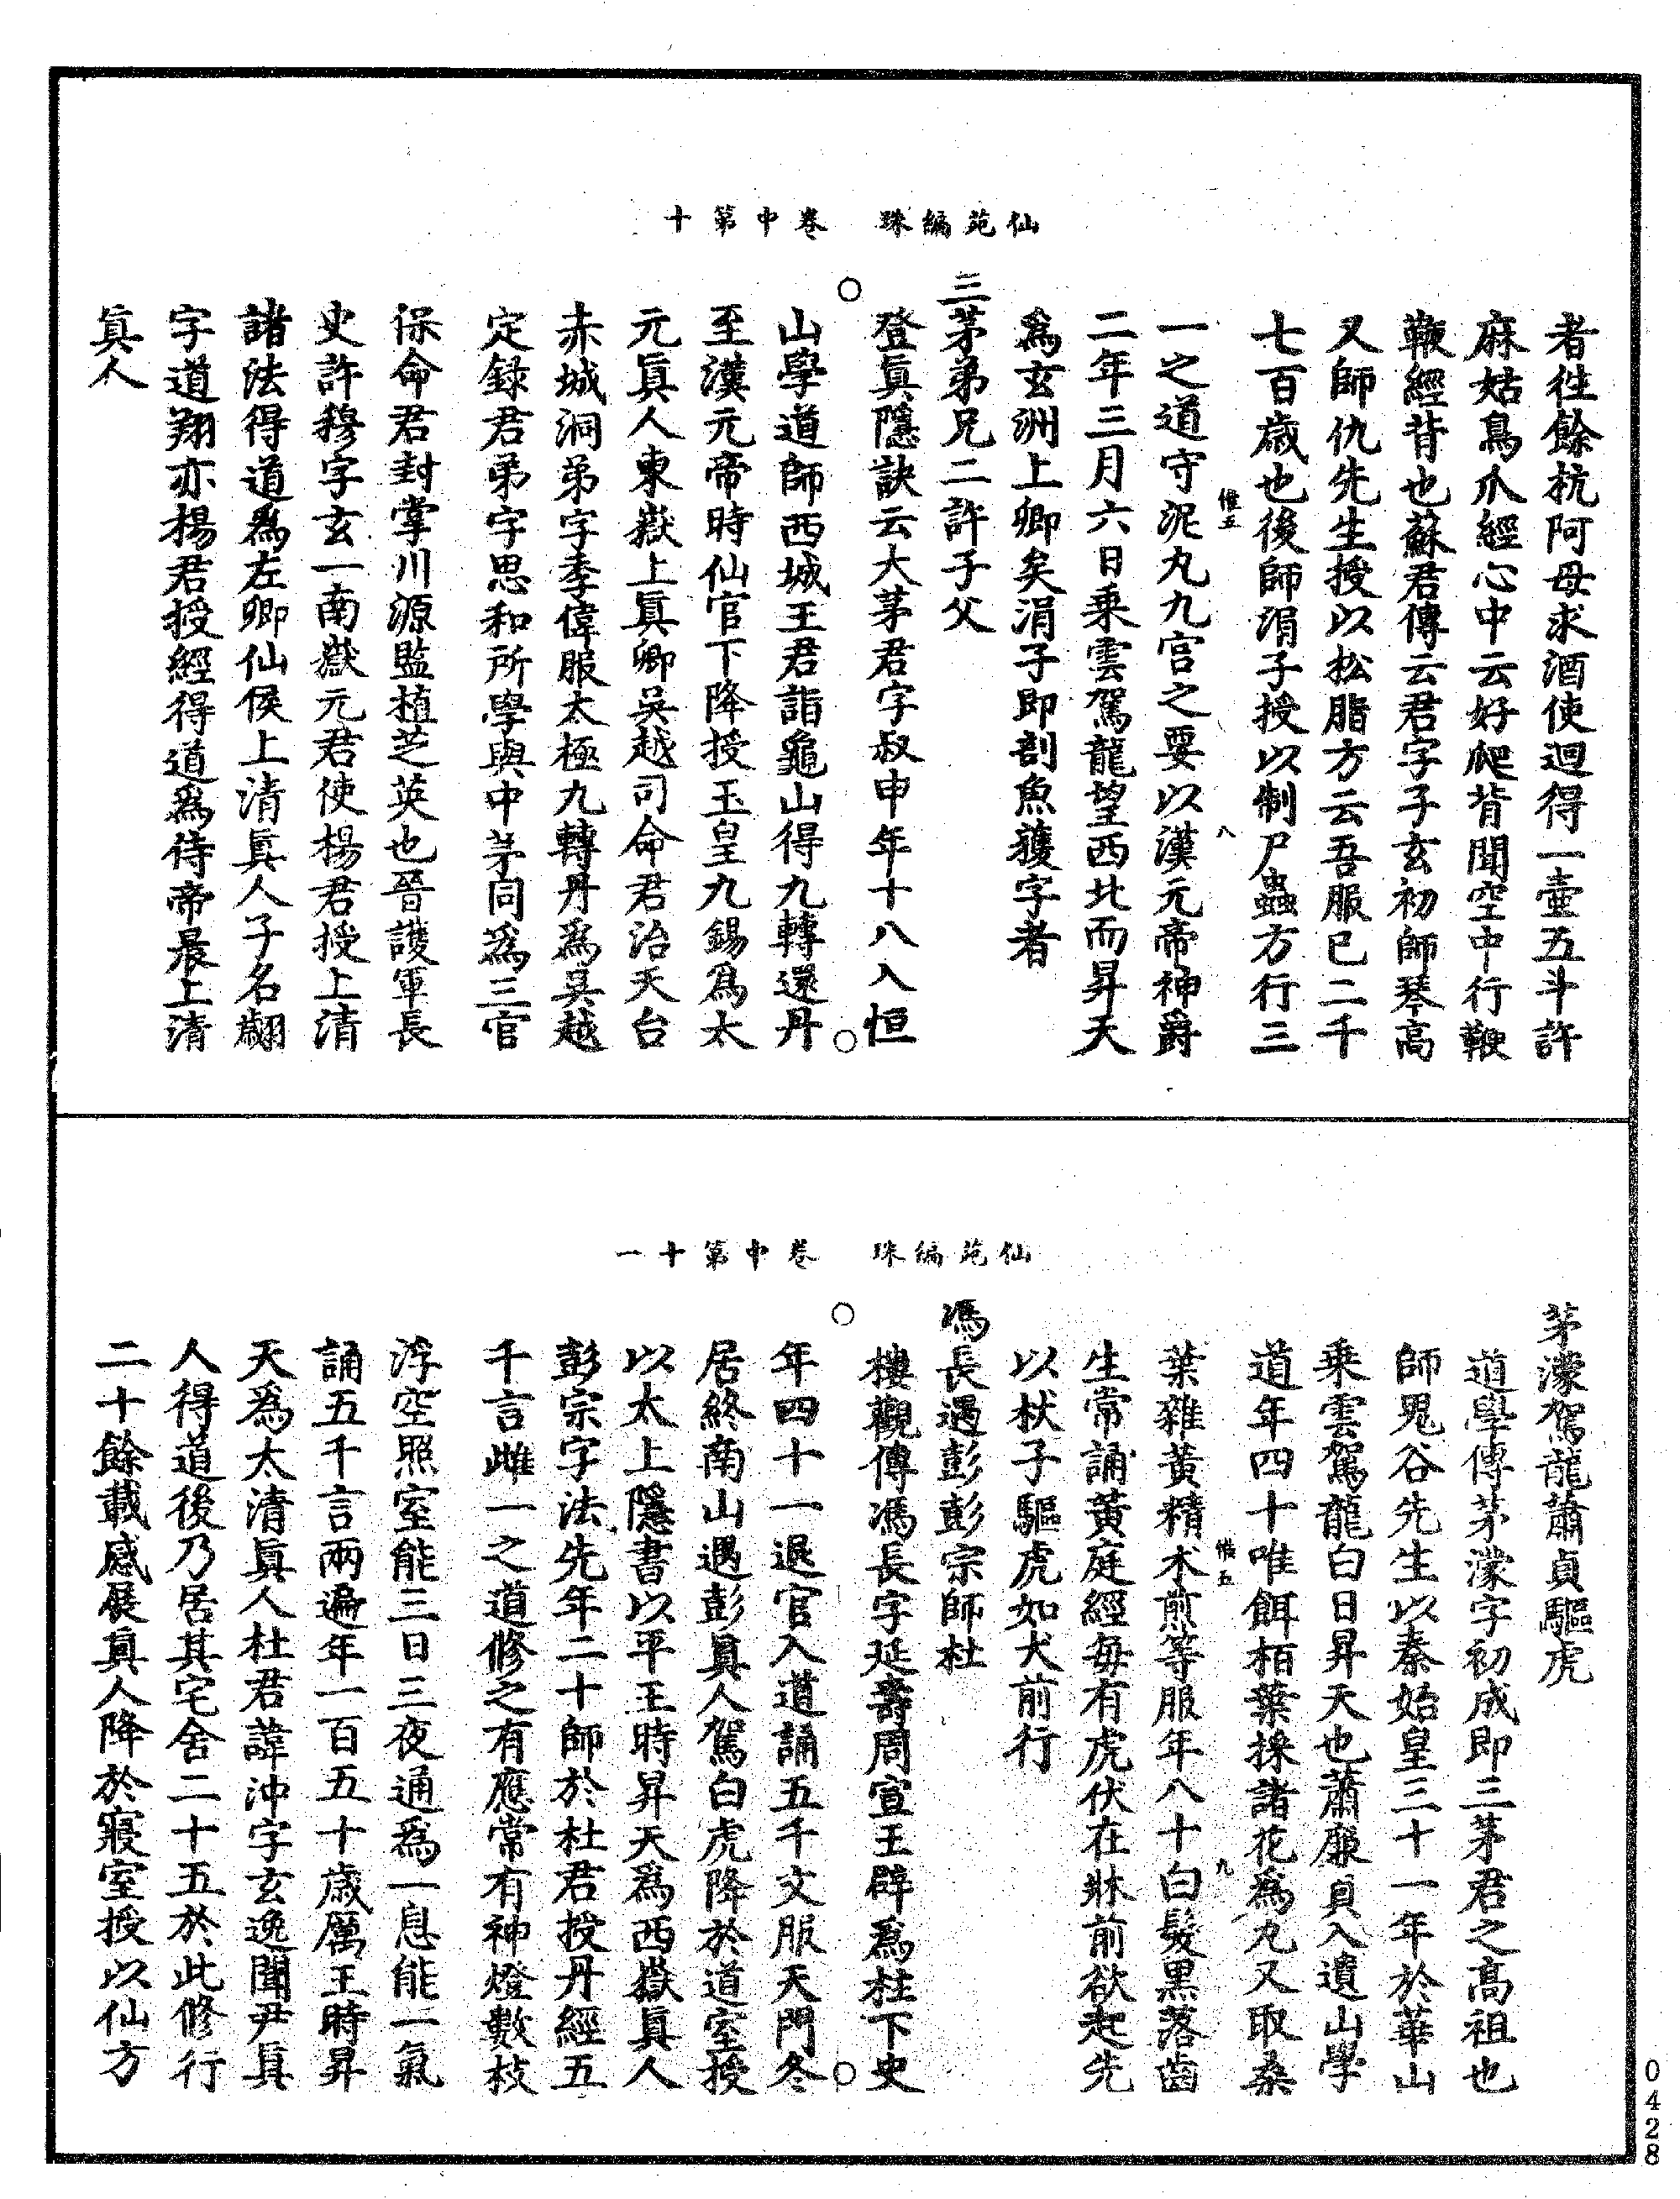 仙苑編珠　卷中第十
者往餘杭阿母求酒使迴得一壺五斗許
麻姑鳥爪經心中云好爬背聞空中行鞭
鞭經背也蘇君傳云君字子玄初師琴高
又師仇先生授以松脂方云吾服已二千
七百歲也後師涓子授以制尸蟲方行三
惟五
八
一之道守泥丸九宮之要以漢元帝神爵
二年三月六日乘雲駕龍望西北而昇天
爲玄洲上卿矣涓子即剖魚獲字者
三茅弟兄二許子父
登眞隱訣云大茅君字叔申年十八入恒
山學道師西城王君詣龜山得九轉還丹
至漢元帝時仙官下降授玉皇九錫爲太
元眞人東嶽上眞卿吳越司命君治天台
赤城洞弟字季偉服太極九轉丹爲吳越
定録君弟字思和所學與中茅同爲三官
保命君封掌川源監植芝英也晉護軍長
史許穆字玄一南嶽元君使楊君授上清
諸法得道爲左卿仙侯上清眞人子名翽
字道翔亦楊君授經得道爲侍帝晨上清
眞人
仙苑編珠　卷中第十一
茅濛駕龍蕭貞驅虎
道學傳茅濛字初成即三茅君之高祖也
師鬼谷先生以秦始皇三十一年於華山
乘雲駕龍白日昇天也蕭廉貞入遺山學
道年四十唯餌栢葉採諸花爲丸又取桑
惟五
九
葉雜黃精朮煎等服年八十白髮黑落齒
生常誦黃庭經每有虎伏在牀前欲起先
以杖子驅虎如犬前行
馮長遇彭彭宗師杜
樓觀傳馮長字延壽周宣王辟爲柱下史
年四十一退官入道誦五千文服天門冬
居終南山遇彭眞人駕白虎降於道室授
以太上隱書以平王時昇天爲西嶽眞人
彭宗字法先年二十師於杜君授丹經五
千言雌一之道修之有應常有神燈數枝
浮空照室能三日三夜通爲一息能一氣
誦五千言兩遍年一百五十歲厲王時昇
天爲太清眞人杜君諱沖字玄逸聞尹眞
人得道後乃居其宅舍二十五於此修行
二十餘載感展眞人降於寢室授以仙方
0428